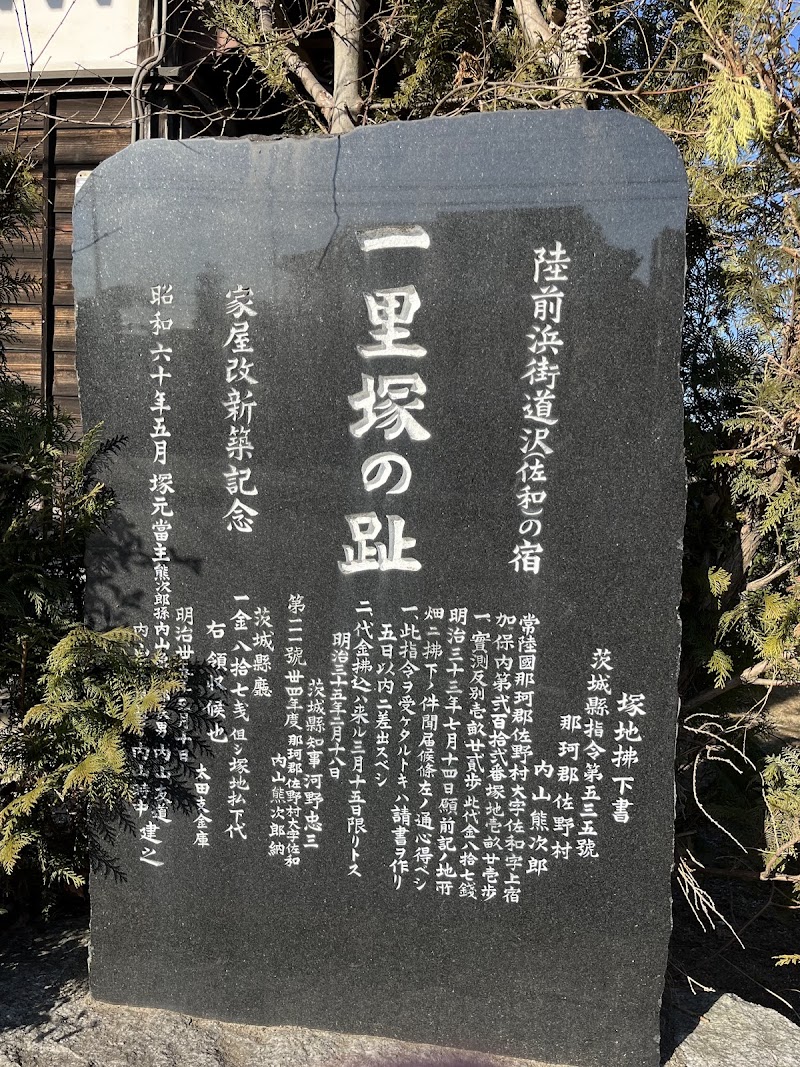 陸前浜街道沢(佐和)の宿
一里塚の趾
家屋改新築記念
昭和六十年五月 塚元當主熊次郎孫内山
塚地拂下書
茨城縣指令第五三五號
那珂郡佐野村
内山熊次郎
常陸國那珂郡佐野村大字佐和字上宿
加保内第弐百拾弐番塚地壱畝廿壱歩
一、實測反別壱畝廿弐歩 此代金八拾七錢
明治三十三年七月十四日願前記ノ地所
畑ニ拂下ノ件聞届候條左ノ通心得ベシ
一、此指令ヲ受ケタルトキハ請書ヲ作リ
五日以内ニ差出スベシ
二、代金拂込ハ来ル三月十五日限リトス
明治三十五年二月十八日
茨城縣知事河野忠三
第二一號 丗四年度 那珂郡佐野村大字佐和
内山熊次郎納
茨城縣廳
一金八拾七戋 但シ塚地払下代
右領収候也
太田支金庫
明治丗
月十日
内山
建之